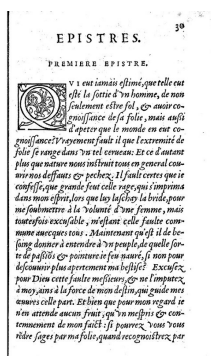 30
EPISTRES.
PREMIERE EPISTRE.
QVI eut iamais estimé, que telle eut
esté la sottie d'vn homme, de non
seulement estre fol, & auoir co-
gnoissance de sa folie, mais aussi
d'apeter que le monde en eut co-
gnoissance? Vrayement faut il que l'extremité de
folie se range dans vn tel cerueau: Et ce d'autant
plus que nature nous instruit tous en general cou-
urir noz deffauts & pechez. Il faut certes que ie
confesse, que grande feut celle rage, qui s'imprima
dans mon esprit, lors que luy laschay la bride, pour
me soubmettre à la volunté d'vne femme, mais
toutesfois excusable, m'estant celle faulte com-
mune auecques tous. Maintenant qu'est il de be-
soing donner à entendre à vn peuple, de quelle sor-
te de passiõs & pointure ie feu nauré, si non pour
descouurir plus apertement ma bestise? Excusez
pour Dieu ceste faulte messieurs, & ne l'imputez
à moy, ains à la force de mon destin, qui guide mes
œuures celle part. Et bien que pour mon regard ie
n'en attende aucun fruit, qu'vn mespris & con-
temnement de mon faict: si pourrez vous vous
rēdre sages par ma folie, quand recognoistrez par